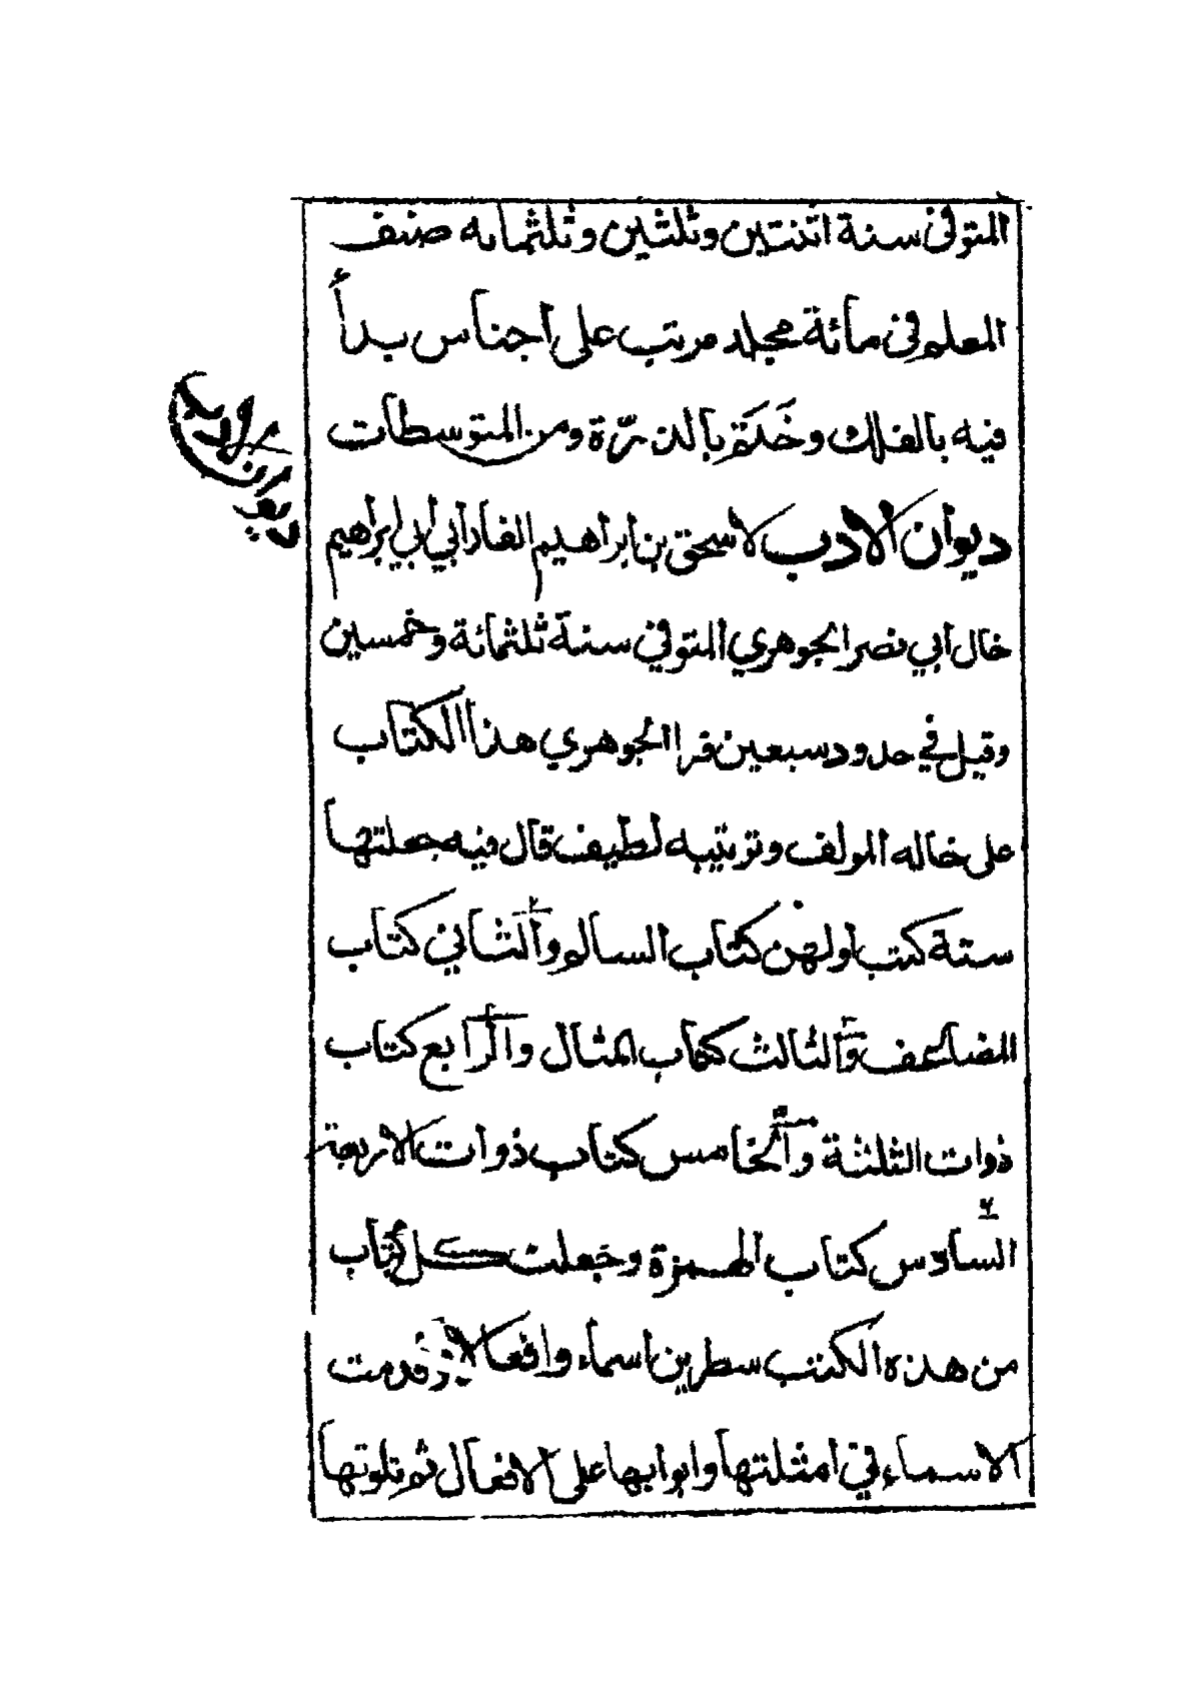 المتوفى سنة اثنتين وثلثين وثلثمائه صنف
المعلم في مائة مجلد مرتب على اجناس بدأ
فيه بالفلك وختم بالذرّة ومن المتوسطات
ديوان الادب لاسحق بن ابراهيم الفارابي ابي ابراهيم
خال ابي نصر الجوهري المتوفى سنة ثلثمائة وخمسين
وقيل في حدود سبعين قرا الجوهري هذا الكتاب
على خاله المولف وترتيبه لطيف قال فيه جعلتها
ستة كتب اولهن كتاب السالم والثاني كتاب
المضاعف والثالث كتاب المثال والرابع كتاب
ذوات الثلثة والخامس كتاب ذوات الاربعة
السادس كتاب الهمزة وجعلت كل كتاب
من هذه الكتب سطرين اسماء وافعالا قدمت
الاسماء في امثلتها وابوابها على الافعال ثم تلوتها
ديوان الادب